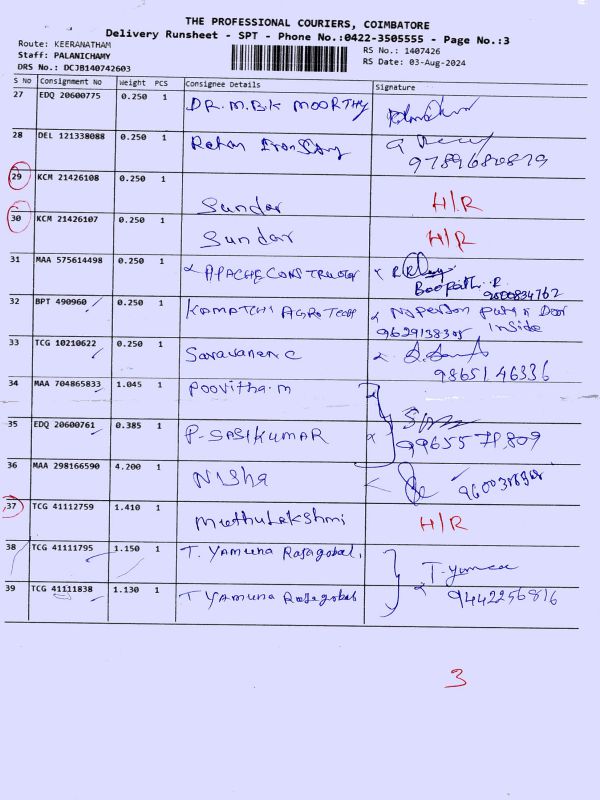 THE PROFESSIONAL COURIERS, COIMBATORE
Delivery Runsheet - SPT - Phone No.:0422-3505555 - Page No.:3
Route: KEERANATHAM
Staff: PALANICHAMY
DRS No.: DCJB140742603
RS No.: 1407426
RS Date: 03-Aug-2024
S No Consignment No Weight PCS Consignee Details Signature
27 EDQ 20600775 0.250 1 DR.M.B.K MOORTHY
28 DEL 121338088 0.250 1
9789680879
29 KCM 21426108 0.250 1 Sundar H/R
30 KCM 21426107 0.250 1 Sundar H/R
31 MAA 575614498 0.250 1 APACHE CONSTRUCTION
Boopathi.R
9600834762
32 BPT 490960 0.250 1 KAMATCHI AGRO TECH No person Putt n Door
9629138305 Inside
33 TCG 10210622 0.250 1 Saravanan C
98651 46336
34 MAA 704865833 1.045 1 Poovitha.m
35 EDQ 20600761 0.385 1 P-SASIKUMAR
36 MAA 298166590 4.200 1 Nisha
37 TCG 41112759 1.410 1 Muthulakshmi H/R
38 TCG 41111795 1.150 1 T. Yamuna Rajagobal,
T.Yamuna
39 TCG 41111838 1.130 1 T Yamuna Rajagobal 9442256816
3